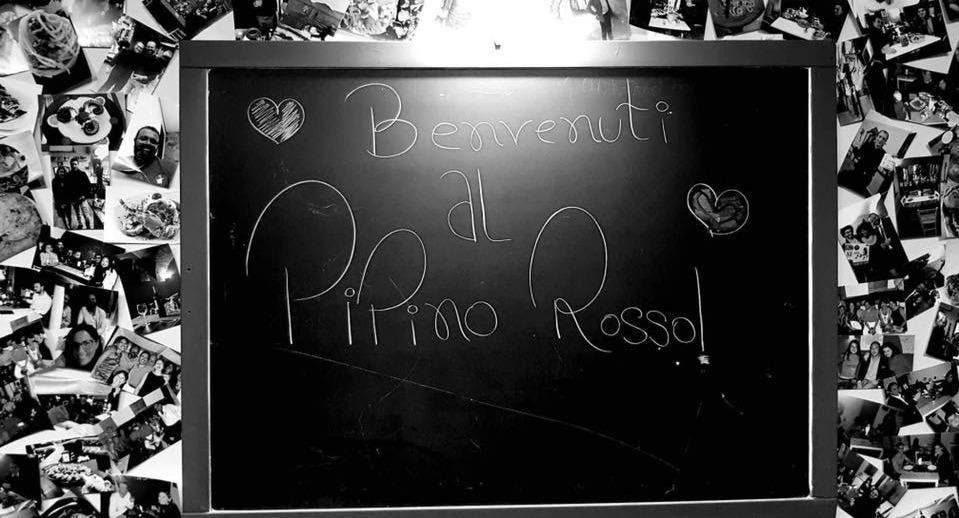 Benvenuti
al
PiPino Rosso!